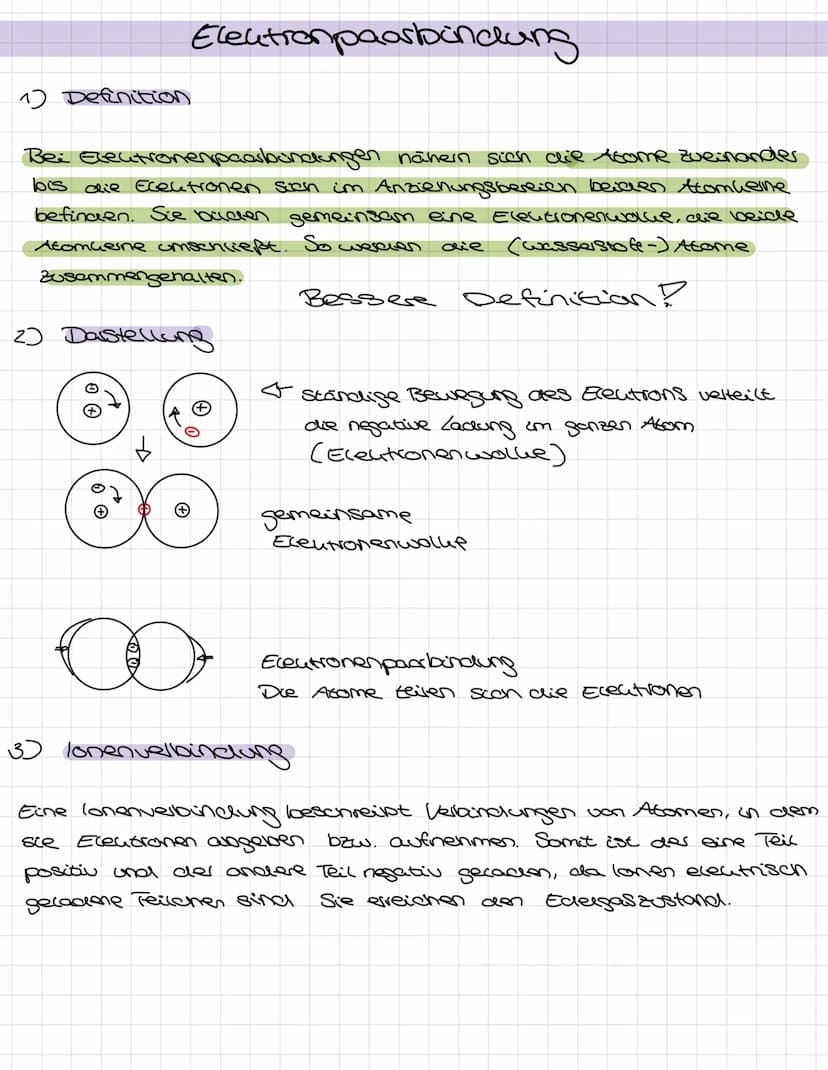 Electronpaarbindung
1) Definition
Bei Electronenpaarbindungen nähern sich die Atome zueinander
bis die Electronen sich im Anziehungsbereich beiden Atomkerne
befinden. Sie bilden gemeinsam eine Electronenwolke, die beide
Atomkerne umschließt. So werden die (wasserstoff-) Atome
zusammengehalten.
Bessere Definition!?
2) Darstellung
ständige Bewegung des Electrons verteilt
die negative Ladung im ganzen Atom
(Electronenwolke)
gemeinsame
Electronenwolke
Electronenpaarbindung
Die Atome teilen sich die Electronen
3) Ionenverbindung
Eine Ionenverbindung beschreibt Verbindungen von Atomen, in dem
sie Electronen abgeben bzw. aufnehmen. Somit ist der eine Teil
positiv und der andere Teil negativ geladen, da Ionen electrisch
geladene Teilchen sind Sie erreichen den Edelgaszustand.